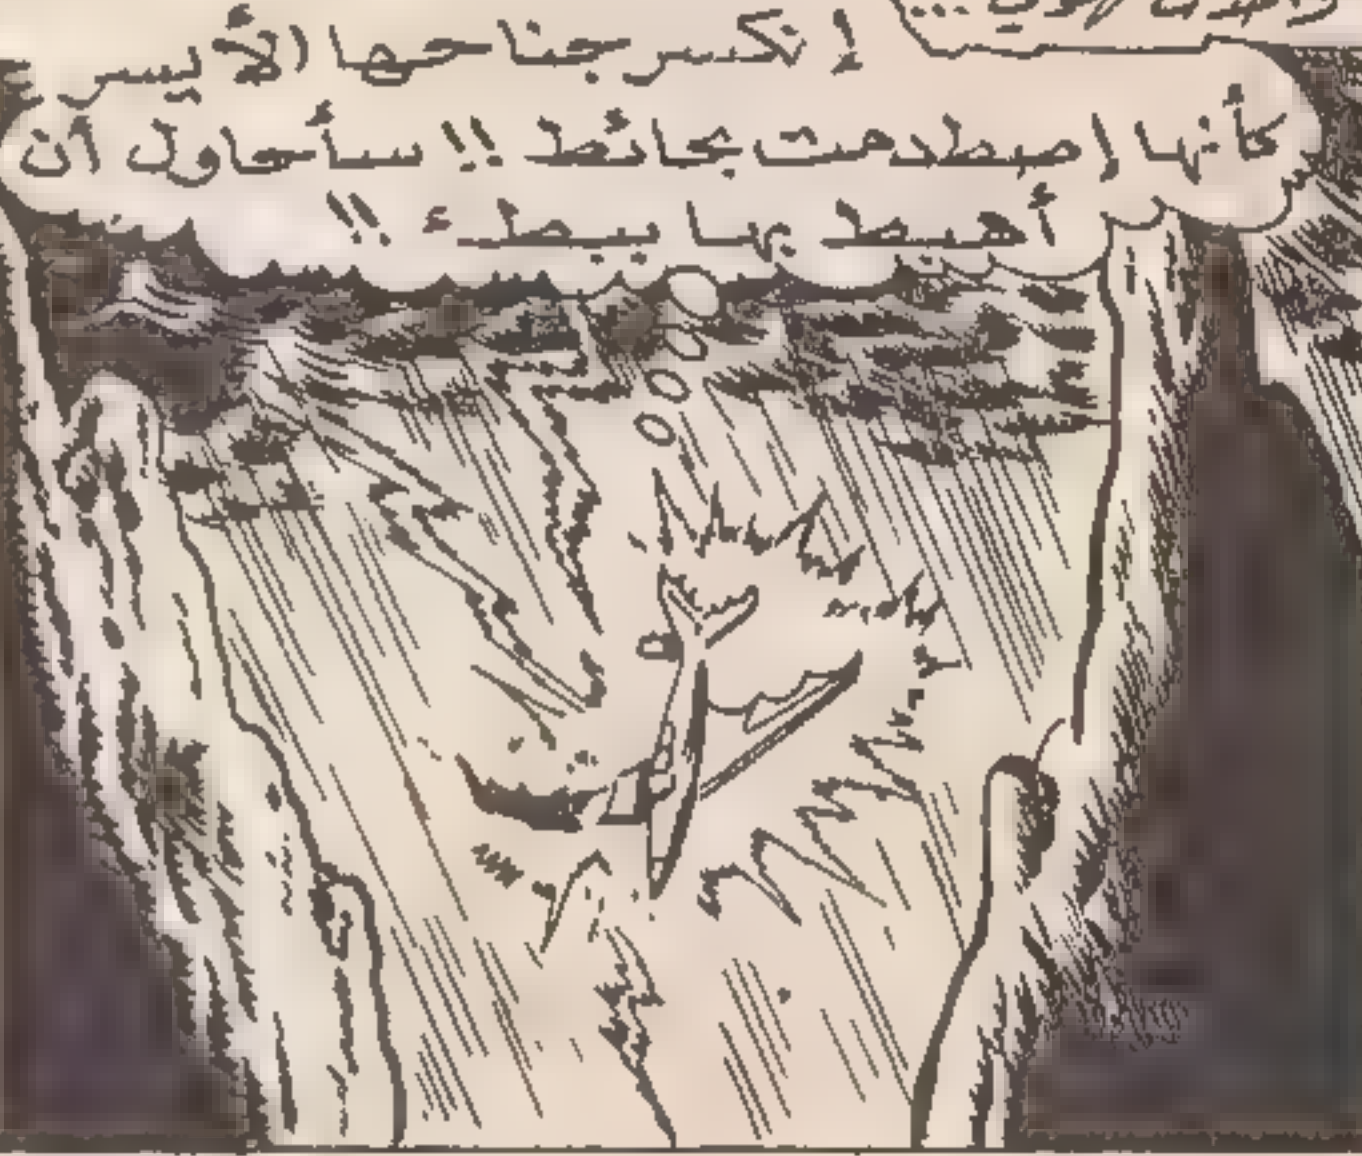 إنكسر جناحها الأيسر
كأنها إصطدمت بحائط !! سأحاول أن
أهبط بها ببطء !!